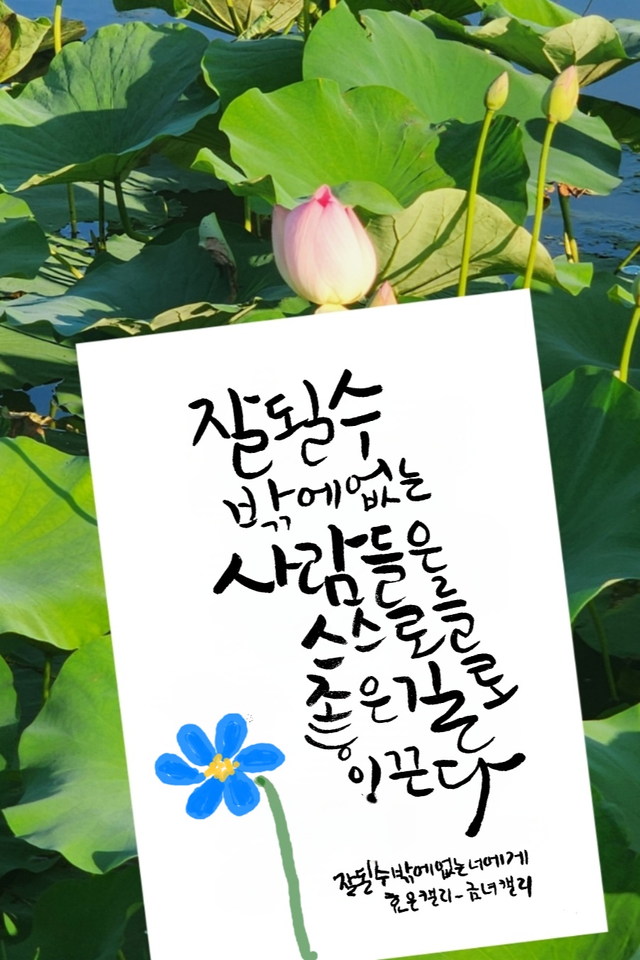 잘될수
밖에없는
사람들은
스스로를
좋은길로
이끈다
잘될수밖에없는너에게
효온캘리-금녀캘리